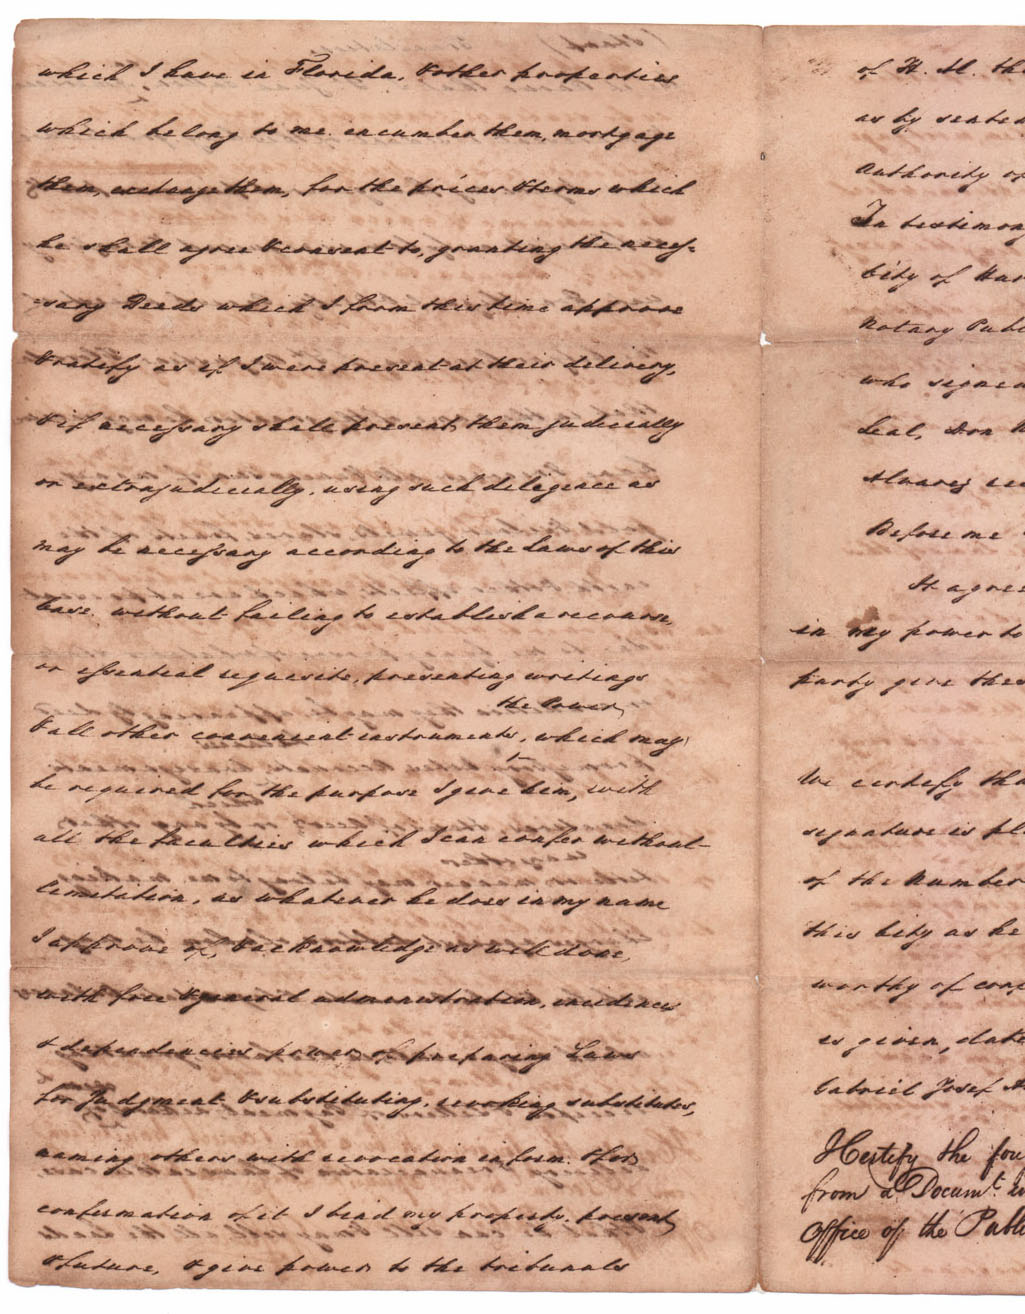 which I have in Florida, & other properties
which belong to me. incumber them, mortgage
them, exchange them, for the prices & terms which
he shall agree & consent to, granting the neces-
sary Deeds which I from this time approve
& ratify as if I were present at their delivery,
& if necessary shall present them judicially
or extrajudicially, using such diligence as
may be necessary according to the Laws of this
Case. without failing to establish a recourse,
or essential requisite, presenting writings
the Power,
& all other convenient instruments, which may
be required for the purpose I give him, with
all the faculties which I can confer without
limitation, as whatever he does in my name
I approve of, & acknowledge as well done,
with free & general administration, incidences
& dependencies power of preparing Laws
for Judgment & substituting, revoking substitutes,
naming others with revocation in form. & for
confirmation of it I bind my property, present
& future, & give power to the tribunals
of H. M. th
as by senten
authority of
In testimony
City of Hav
Notary Publ
who signed
Seal, Don
Alvarez
Before me
It agre
in my power to
party give thes
We certify tha
signature is pl
of the Number
this City as he
worthy of con
is given, date
Gabriel Josef
I Certify the fo
from a Docum.t
Office of the Publ